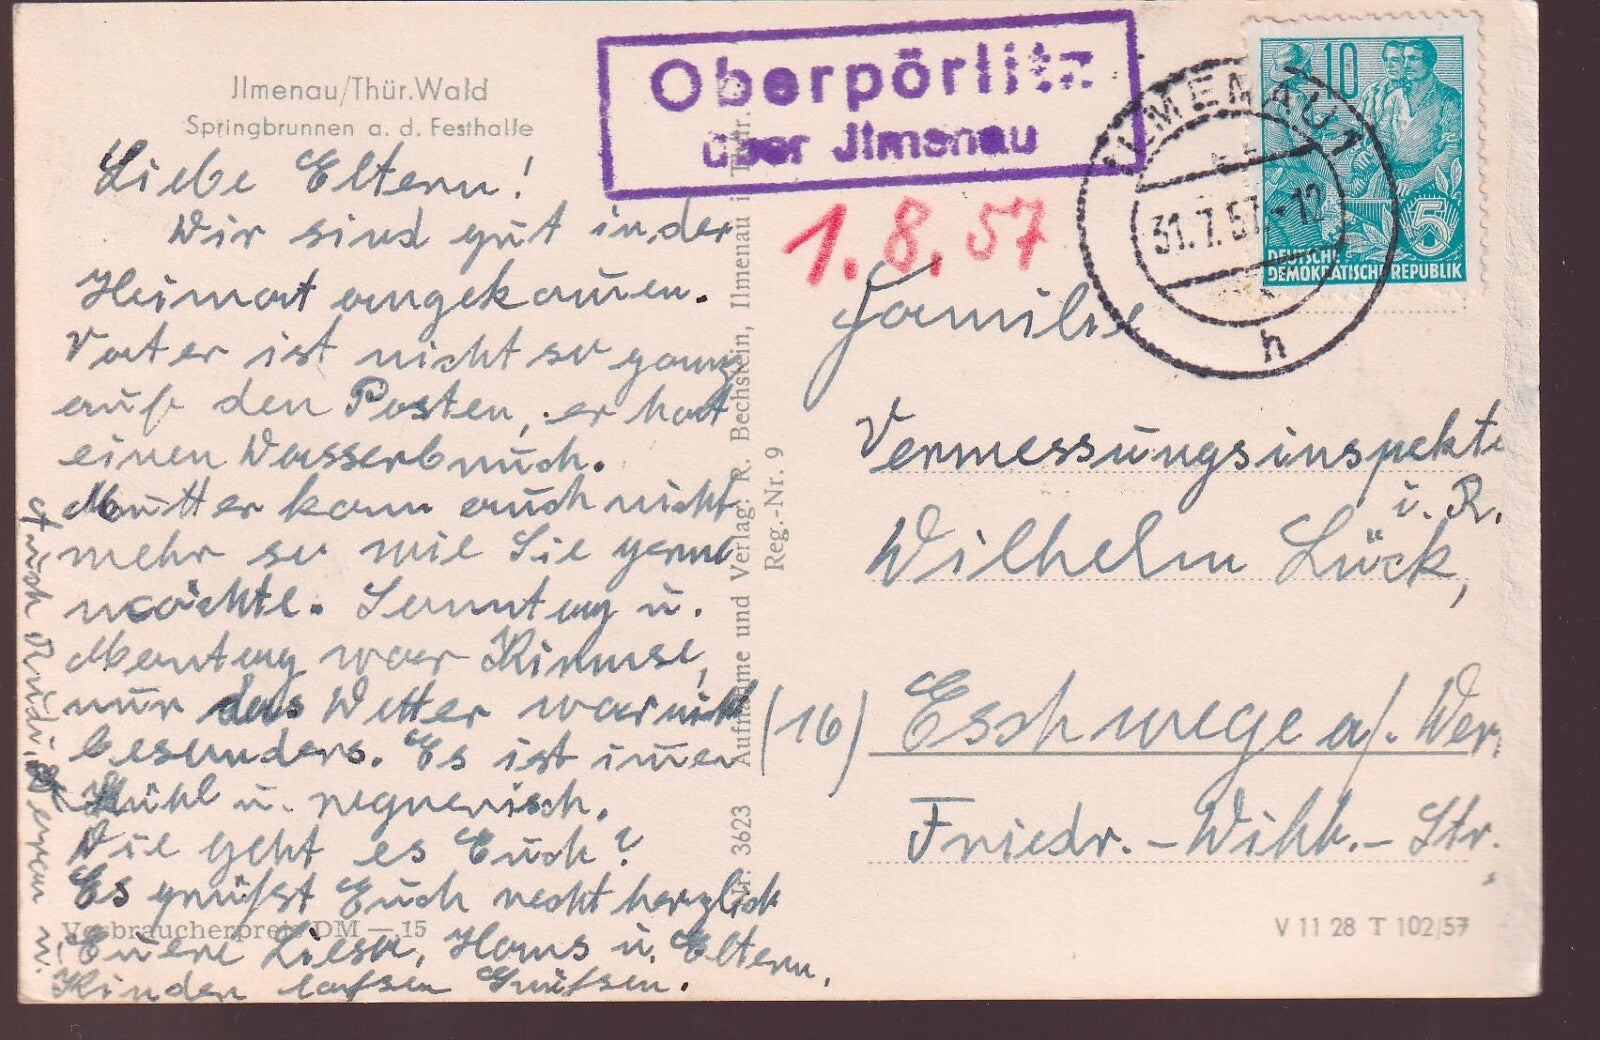 Ilmenau/Thür.Wald
Springbrunnen a. d. Festhalle
Liebe Eltern!
Wir sind gut in der
Heimat angekomen.
Vater ist nicht so ganz
auf den Posten, er hat
einen Wasserbruch.
Mutter kann auch nicht
mehr so wie Sie gerne
möchte. Sonntag u.
Montag war Kirmse,
nur das Wetter war nicht
besonders. Es ist imer
Kühl u. regnerisch.
Wie geht es Euch?
Es grüßt Euch recht herzlich
Euere Liesa, Hans u. Eltern.
Auch Rudi, Veran u.
Kinder lassen Grüßen.
Verbraucherpreis DM — 15
Nr. 3623 Aufnahme und Verlag: R. Bechstein, Ilmenau i. Thür.
Reg.-Nr. 9
Oberpörlitz
über Ilmenau
1.8.57
ILMENAU 1
31.7.57.-12
h
10
5
DEUTSCHE
DEMOKRATISCHE REPUBLIK
Familie
Vermessungsinspekto
i. R.
Wilhelm Lück,
(16) Eschwege a/. Wer
Friedr.-Wilh.-Str.
V 11 28 T 102/57